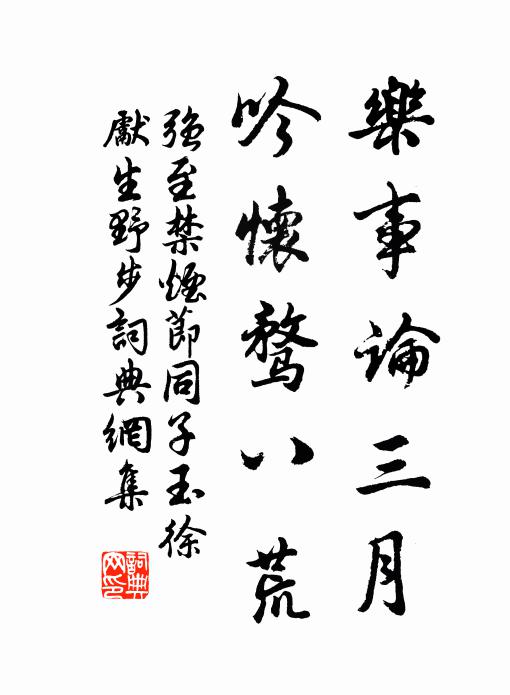 樂事論三月
吟懷騖八荒
强至禁煙節同子玉徐
獻生野步詞典網集
詞典网印